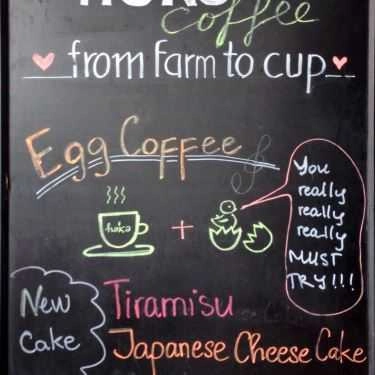 coffee
from Farm to cup
Egg Coffee
haka
+
You
really
really
really
MUST
TRY!!!
New
Cake
Tiramisu
Japanese Cheese Cake